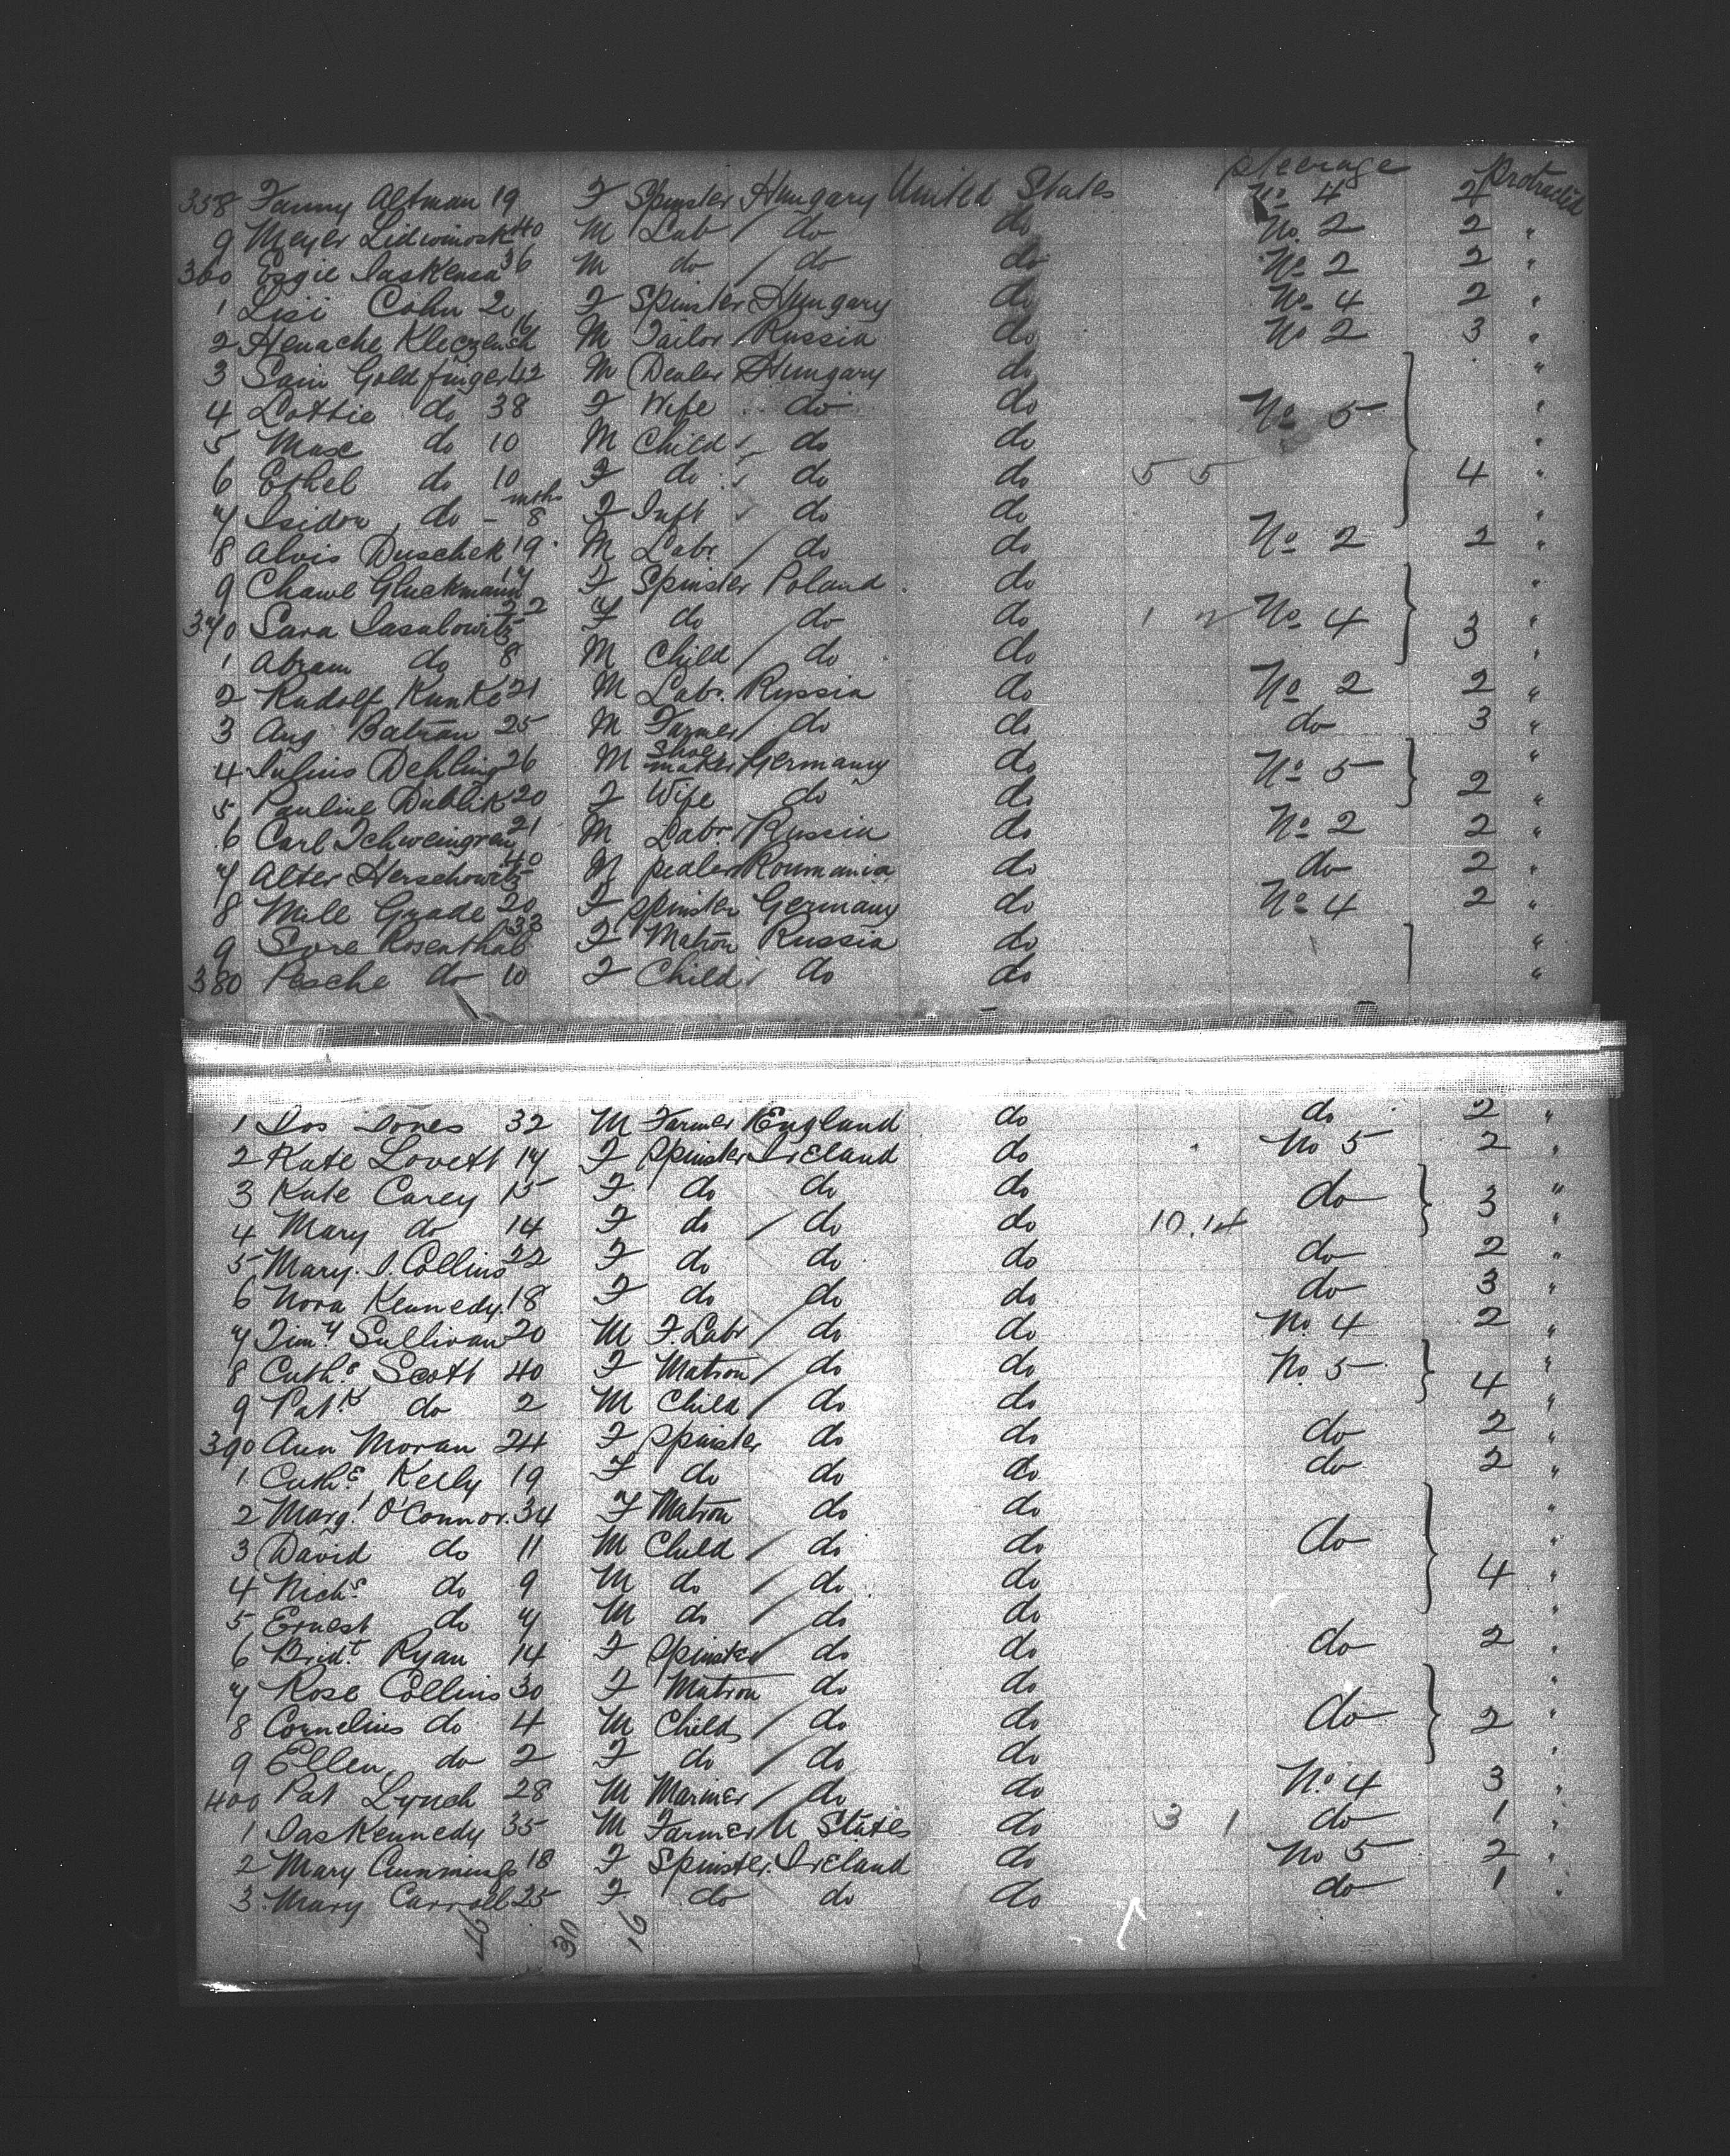 Steerage Protracted
358 Fanny Altman 19 F Spinster Hungary United States No 4 2
9 Meyer 40 M Lab / do do No. 2 2 "
360 36 M do / do do No 2 2 "
1 Lisi Cohn 20 F Spinster Hungary do No 4 2 "
2 Henache 16 M Tailor Russia do No 2 3 "
3 Sain Goldfinger 42 M Dealer Hungary do "
4 Lottie do 38 F Wife do do No 5 "
5 Max do 10 M Child do do "
6 Ethel do 10 F do do do 5 5 4 "
7 Isidor do - 8 mths F Inft do do "
8 Alois Duschek 19 M Labr / do do No 2 2 "
9 Chawe Gluckmann 17 F Spinster Poland do "
370 Sara 22 F do do do 1 2 No 4 3 "
1 Abram do 8 M Child / do do "
2 Rudolf Kunke 21 M Labr. Russia do No 2 2 "
3 Aug Batran 25 M Farmer / do do do 3 "
4 Julius Dehling 26 M Shoemaker Germany do No 5 "
5 Pauline Dublik 20 F Wife do do 2 "
6 Carl 21 M Labr. Russia do No 2 2 "
7 Alter Herschowitz 40 M pedler Roumania do do 2 "
8 Mill Grade 20 F Spinster Germany do No 4 2 "
9 Sore Rosenthal 33 F Matron Russia do "
380 Pesche do 10 F Child do do "
1 Jos Jones 32 M Farmer England do do 2 "
2 Kate Lovett 17 F Spinster Ireland do No 5 2 "
3 Kate Carey 15 F do do do do 3 "
4 Mary do 14 F do / do do 10.14 "
5 Mary. J. Collins 22 F do do do do 2 "
6 Nora Kennedy. 18 F do do do do 3 "
7 Timy Sullivan 20 M F. Labr / do do No. 4 2 "
8 Cathe Scott 40 F Matron / do do No. 5 4 "
9 Patk do 2 M Child / do do "
390 Ann Moran 24 F Spinster do do do 2 "
1 Cathe Kelly 19 F do do do do 2 "
2 Margt O'Connor. 34 F Matron do do "
3 David do 11 M Child / do do do "
4 Nichs do 9 M do / do do 4 "
5 Ernest do 7 M do / do do "
6 Bridt Ryan 14 F Spinster do do do 2 "
7 Rose Collins 30 F Matron do do "
8 Cornelius do 4 M Child / do do do 2 "
9 Ellen do 2 F do / do do "
400 Pat Lynch 28 M Mariner / do do No. 4 3 "
1 Jas Kennedy 35 M Farmer U States do 3 1 do 1 "
2 Mary Cummings 18 F Spinster Ireland do No 5 2 "
3 Mary Carroll 25 F do do do do 1 "
46 30 16